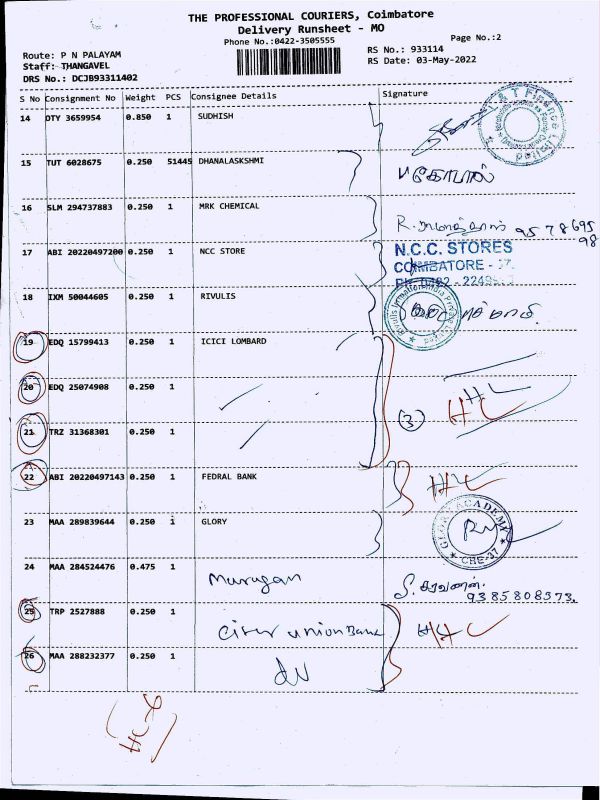 THE PROFESSIONAL COURIERS, Coimbatore
Delivery Runsheet - MO
Phone No.:0422-3505555
Page No.:2
Route: P N PALAYAM
RS No.: 933114
Staff: THANGAVEL
RS Date: 03-May-2022
DRS No.: DCJB93311402
S No Consignment No Weight PCS Consignee Details Signature
14 OTY 3659954 0.850 1 SUDHISH
15 TUT 6028675 0.250 51445 DHANALASKSHMI
கோபால்
16 SLM 294737883 0.250 1 MRK CHEMICAL
9578695
98
17 ABI 20220497200 0.250 1 NCC STORE
N.C.C. STORES
COIMBATORE - 37.
18 IXM 50044605 0.250 1 RIVULIS
19 EDQ 15799413 0.250 1 ICICI LOMBARD
20 EDQ 25074908 0.250 1
HL
21 TRZ 31368301 0.250 1
(3)
22 ABI 20220497143 0.250 1 FEDRAL BANK
23 MAA 289839644 0.250 1 GLORY
GLORY ACADEMY
CBE-37
24 MAA 284524476 0.475 1 Murugan
S. சரவணன்.
9385808573.
25 TRP 2527888 0.250 1
union Bank
26 MAA 288232377 0.250 1